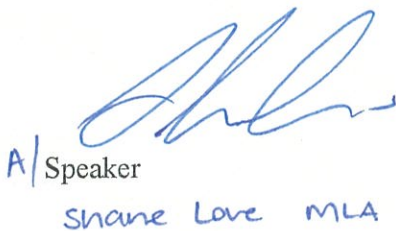 A/Speaker
Shane Love MLA